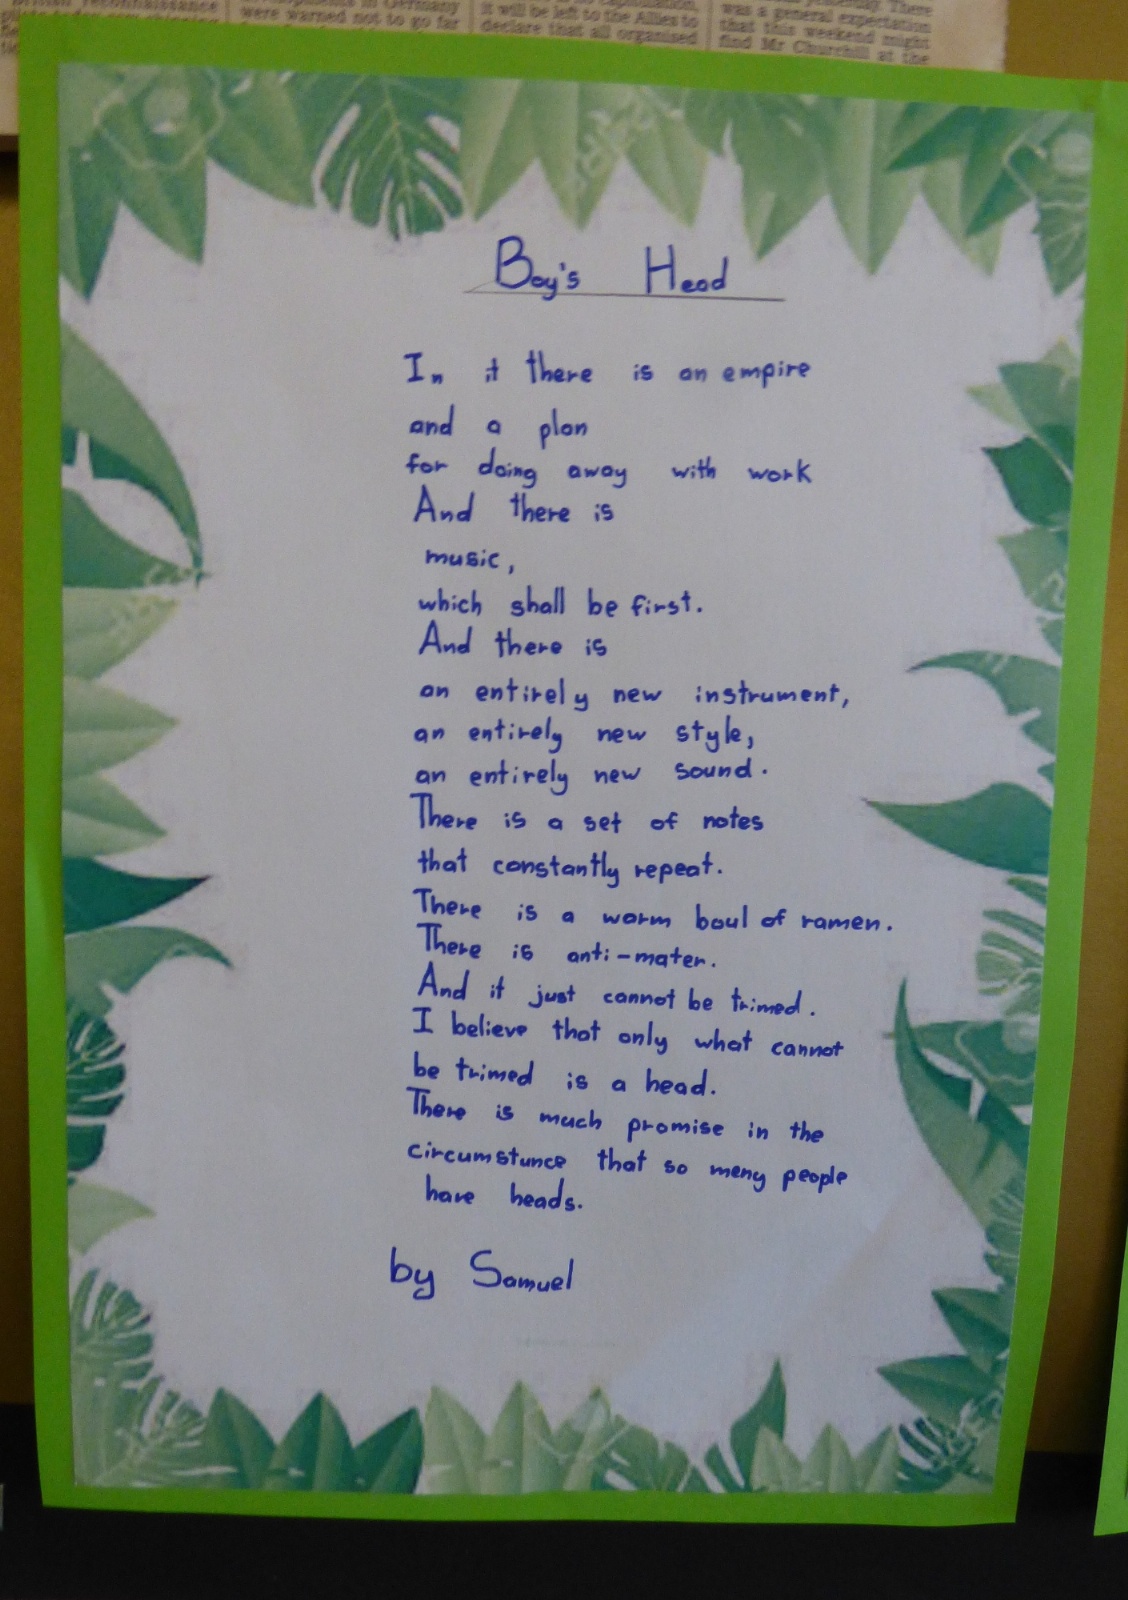 were warned not to go far
it will be left to the Allies to
declare that all organised
was a general expectation
that this weekend might
find Mr Churchill at the
Boy's Head
In it there is an empire
and a plan
for doing away with work
And there is
music,
which shall be first.
And there is
an entirely new instrument,
an entirely new style,
an entirely new sound.
There is a set of notes
that constantly repeat.
There is a worm boul of ramen.
There is anti-mater.
And it just cannot be trimed.
I believe that only what cannot
be trimed is a head.
There is much promise in the
circumstunce that so meny people
have heads.
by Samuel